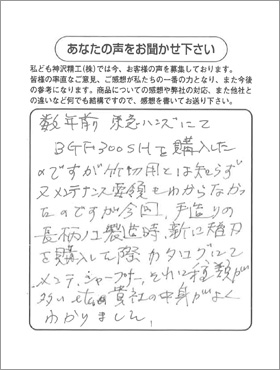 あなたの声をお聞かせ下さい
私ども神沢精工(株)では今、お客様の声を募集しております。
皆様の率直なご意見、ご感想が私たちの一番の力となり、また今後
の参考になります。商品についての感想や弊社の対応、また他社と
の違いなど何でも結構ですので、感想を書いてお送り下さい。
数年前 東急ハンズにて
BGF300SHを購入した
のですが竹切用とは知らず
又メンテナンス要領もわからなかっ
たのですが今回、手造りの
長柄ノコ製造時、新に替刃
を購入した際カタログにて
メンテ、シャープナー、それに種類が
多い 貴社の中身がよく
わかりました。